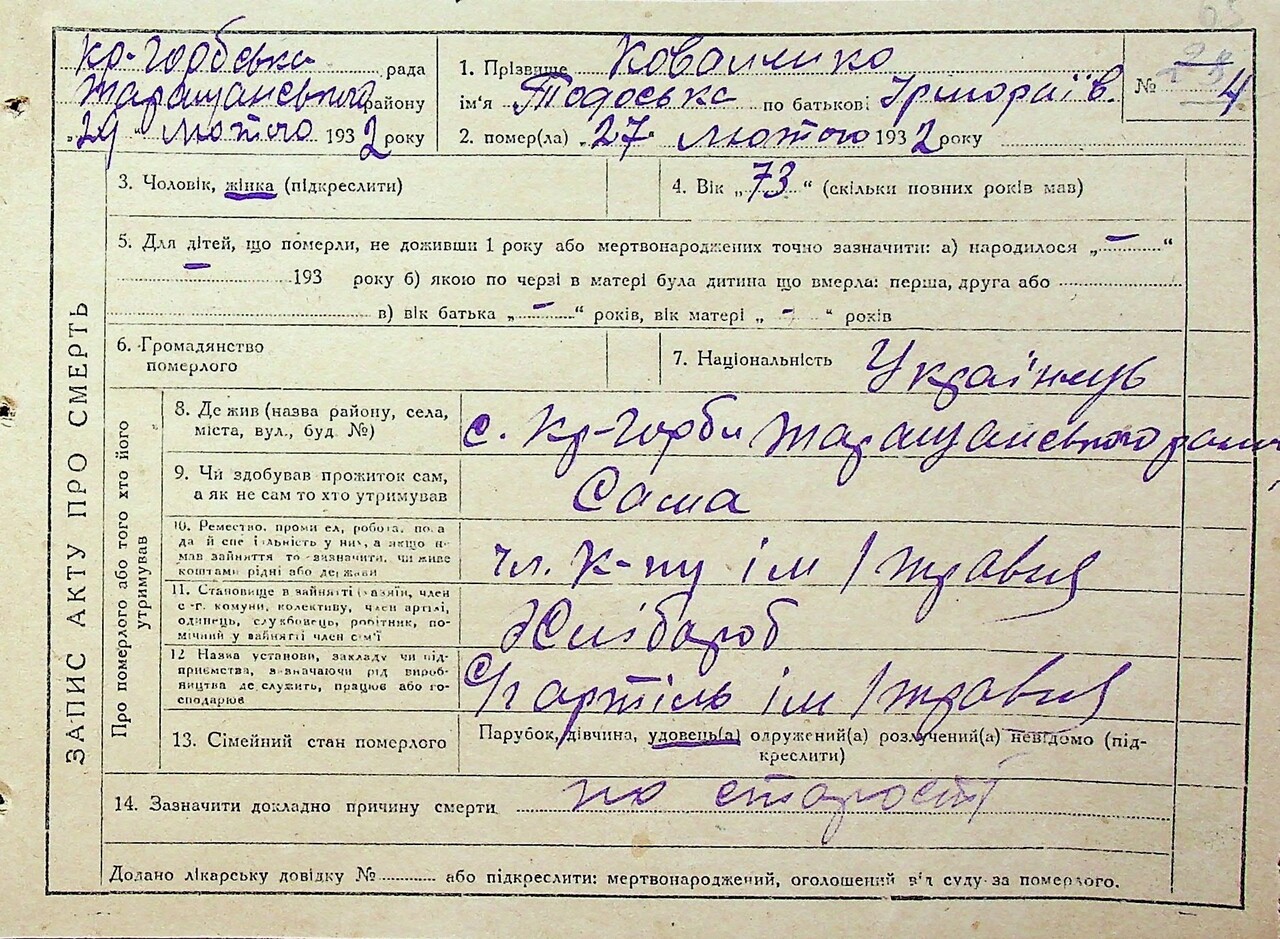 кр-Горбська рада
Таращанського району
„29“ лютого 1932 року
1. Прізвище Коваленко
ім'я Тодоська по батькові
№ 4
2. помер(ла) „27“ лютого 1932 року
3. Чоловік, жінка (підкреслити)
4. Вік „73“ (скільки повних років мав)
5. Для дітей, що померли, не доживши 1 року або мертвонароджених точно зазначити: а) народилося „—“
— 193 року б) якою по черзі в матері була дитина що вмерла: перша, друга або
в) вік батька „-“ років, вік матері „-“ років
6. Громадянство
померлого
7. Національність Українець
ЗАПИС АКТУ ПРО СМЕРТЬ
Про померлого або того хто його
утримував
8. Де жив (назва району, села,
міста, вул., буд. №)
с. Кр-Горби Таращанського
9. Чи здобував прожиток сам,
а як не сам то хто утримував
Сама
10. Ремество, промисел, робота, поса
да й спеціальність у них, а якщо не
мав зайняття то зазначити, чи живе
коштами рідні або держави
чл. К-пу ім 1 травня
11. Становище в зайнятті (хазяїн, член
с.-г. комуни, колективу, член артілі,
одинець, службовець, робітник, по-
мічний у зайнятті член сім'ї
Хлібороб
12 Назва установи, закладу чи під-
приємства, зазначаючи рід вироб-
ництва де служить, працює або го-
сподарює
С/г артіль ім 1 травня
13. Сімейний стан померлого
Парубок, дівчина, удовець(а) одружений(а) розлучений(а) невідомо (під-
креслити)
14. Зазначити докладно причину смерти по старості
Додано лікарську довідку № або підкреслити: мертвонароджений, оголошений від суду за померлого.